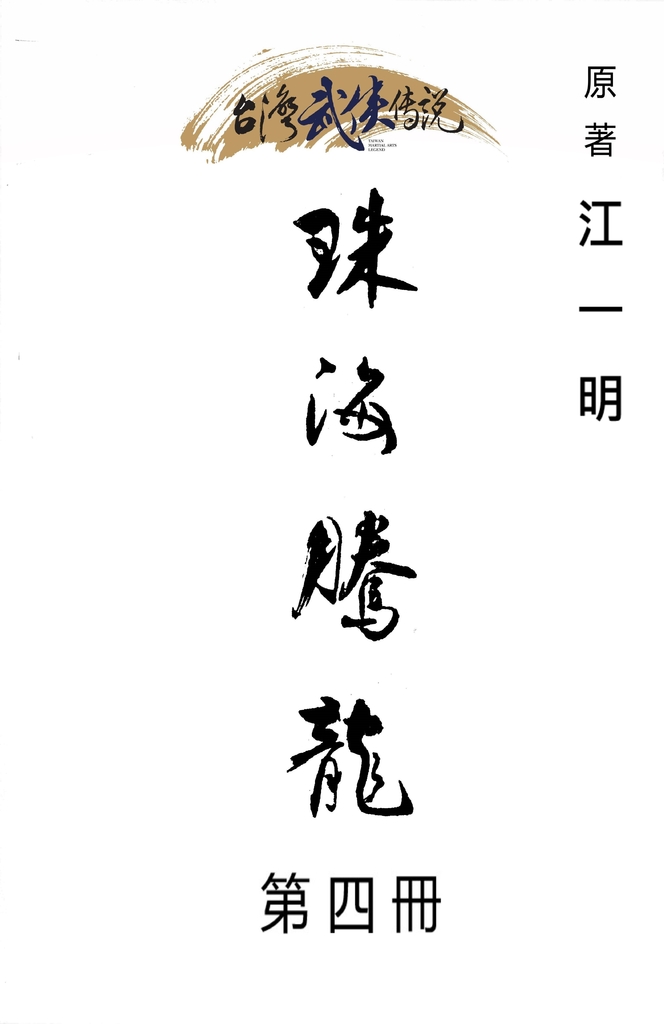 台灣武俠传説
TAIWAN
MARTIAL ARTS
LEGEND
原著 江一明
珠海騰龍
第四冊